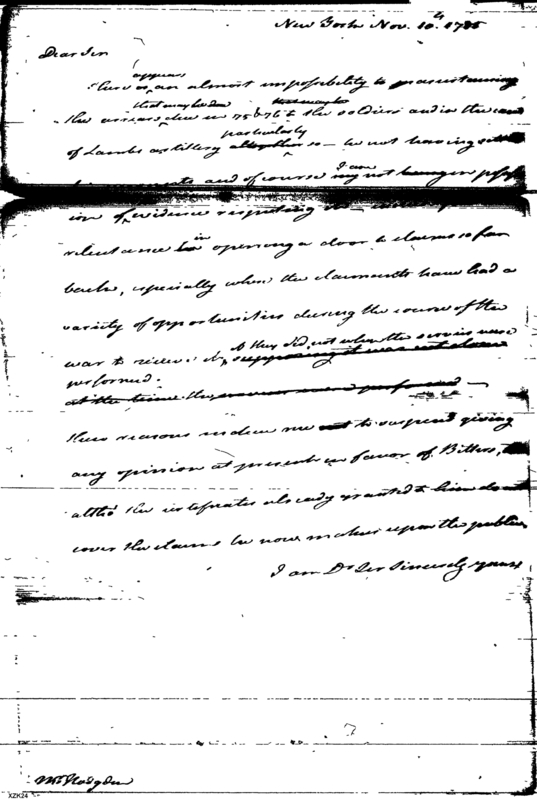 New York Nov. 10th 1785
Dear Sir
appears
There is an almost impossibility to
that may be due that may be
the arrears due in 75 & 76 to the soldiers and in the case
particularly
of Lambs artillery altogether so – he not having
I am
and of course my not being in
ion of evidence respecting
in
reluctance opening a door to claims so far
back, especially when the claimants have had a
variety of opportunities during the course of the
if they did not when the services were
war to receive it, supposing it was not done
performed.
at the time the services were performed –
These reasons induce me not to suspend giving
any opinion at present in favor of Bitters,
altho' the certificates already granted to him do not
cover the claims he now makes upon the public
I am Dr Sir Sincerely yours
Mr Hodgdon
XZK24